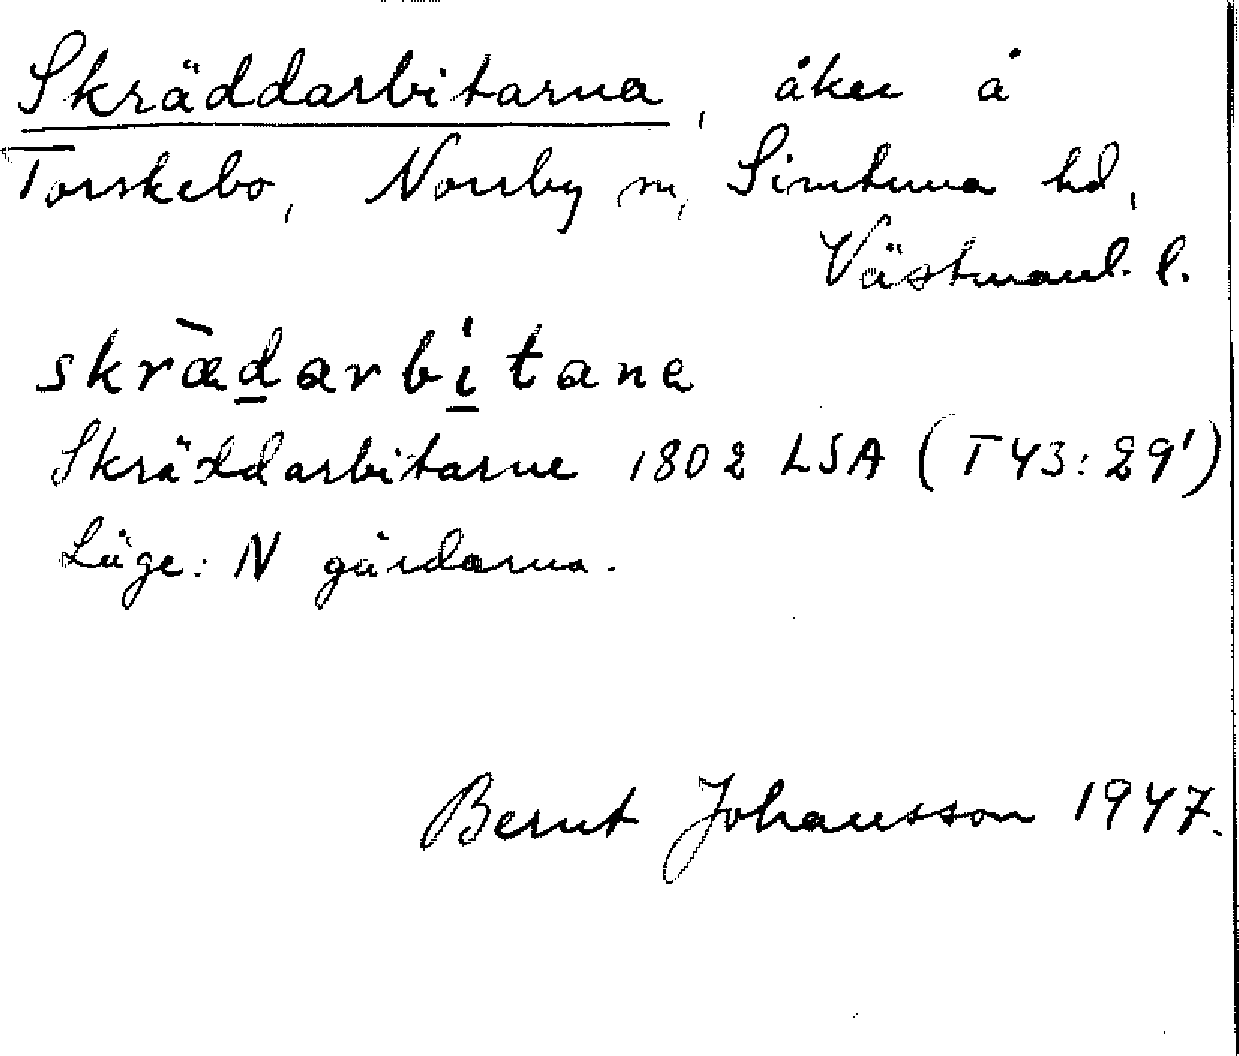 Skräddarbitarna, åker å
Torskebo, Norrby sn, Simtuna hd,
Västmanl. l.
skrædarbitana
Skräddarbitarne 1802 LSA (T43:29')
Läge: N gårdarna.
Bernt Johansson 1947.